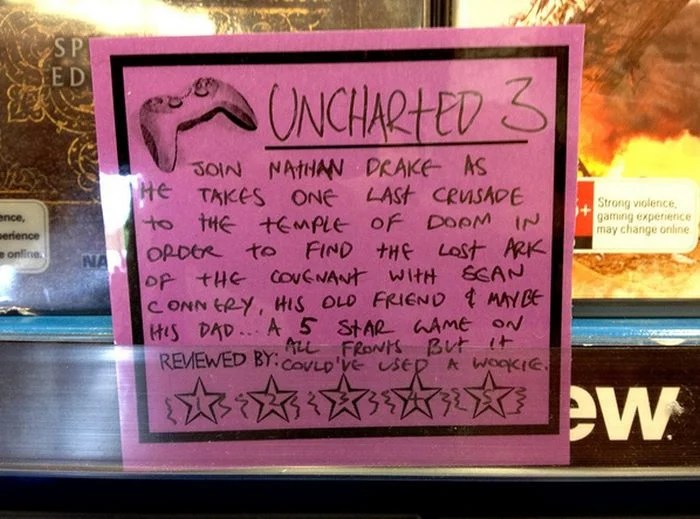 SP
ED
UNCHARTED 3
JOIN NATHAN DRAKE AS
HE TAKES ONE LAST CRUSADE
TO THE TEMPLE OF DOOM IN
ORDER TO FIND THE LOST ARK
OF THE COVENANT WITH SEAN
CONNERY, HIS OLD FRIEND & MAYBE
HIS DAD... A 5 STAR GAME ON
ALL FRONTS BUT IT
REVIEWED BY: COULD'VE USED A WOOKIE.
1 2 3 4 5
ence,
perience
e online.
NA
Strong violence,
gaming experience
may change online
ew